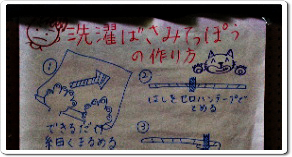 洗濯ばさみてっぽう
の作り方
①
できるだけ
細くまるめる
②
はしをセロハンテープで
とめる
③